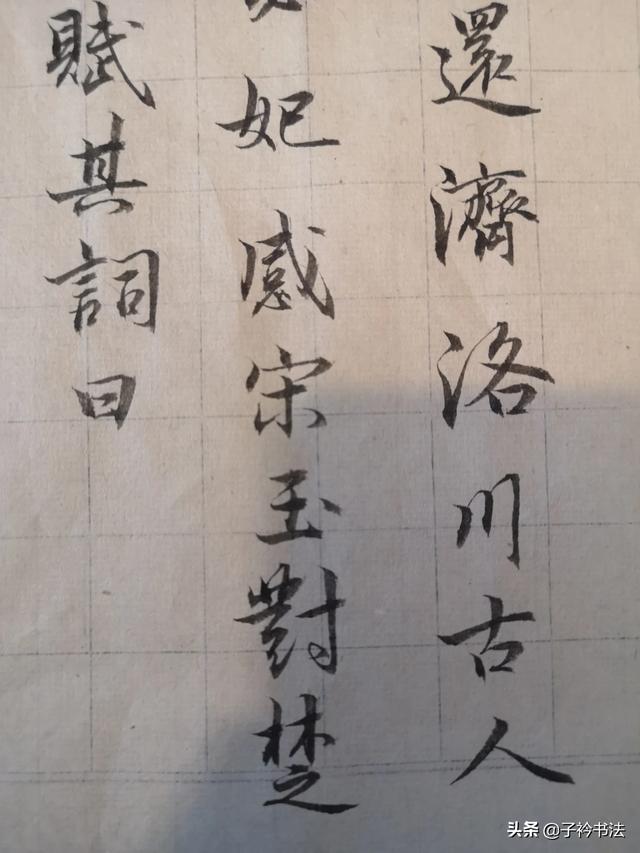 還濟洛川古人
妃感宋玉對楚
賦其詞曰
头条@子衿书法